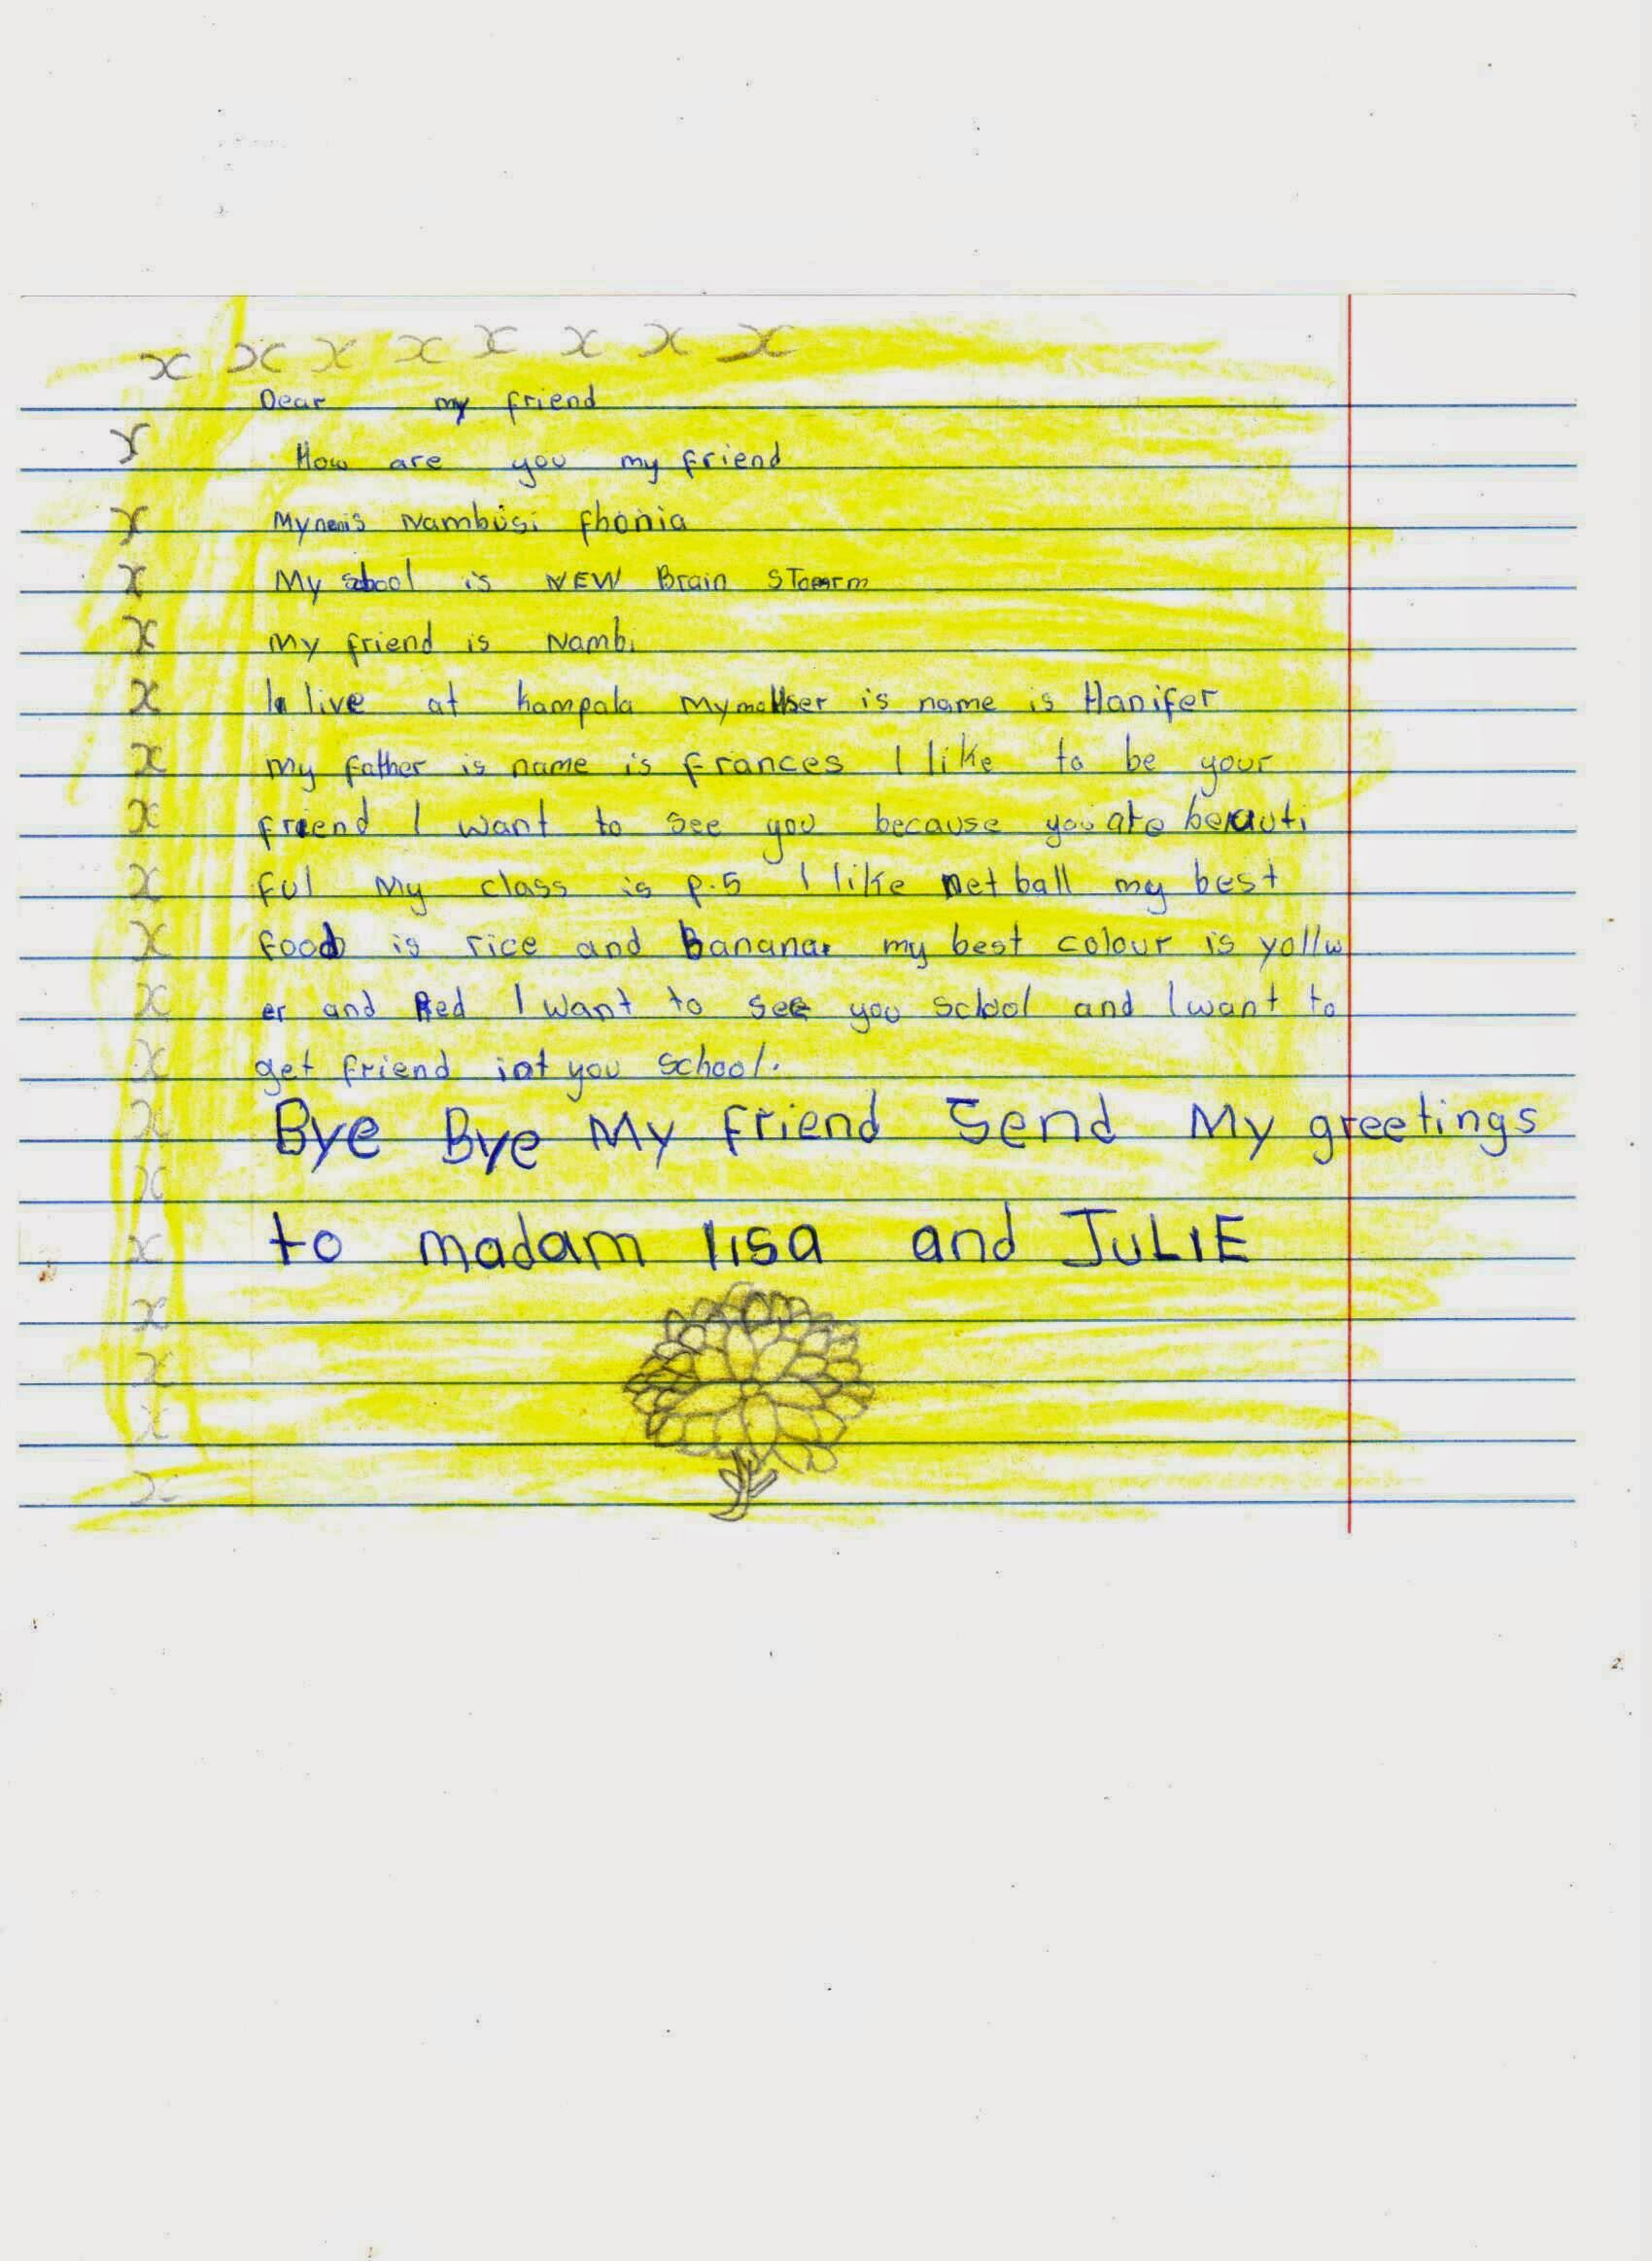 x x x x x x x x
Dear my friend
x How are you my friend
x My nam is Nambusi fhonia
x My school is NEW Brain SToerm
x My friend is Nambi
x I live at kampala My mother is name is Hanifer
x my father is name is frances I like to be your
x friend I want to see you because you are beauti
x ful My class is p.5 I like net ball my best
x food is rice and banana. my best colour is yollw
x er and Red I want to see you school and I want to
x get friend iat you school.
x Bye Bye My friend Send My greetings
x
x to madam lisa and JULIE
x
x
x
x